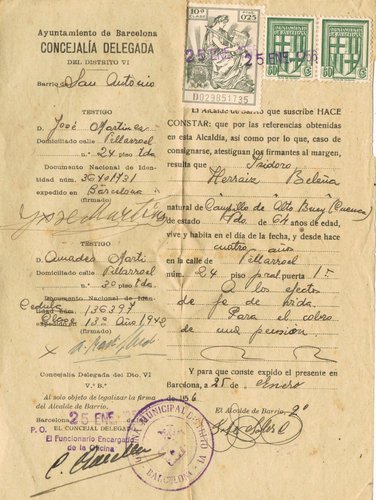 Ayuntamiento de Barcelona
CONCEJALÍA DELEGADA
DEL DISTRITO VI
Barrio de San Antonio
TESTIGO
D. José Martinez
Domiciliado calle Villarroel
n.º 24 piso tda
Documento Nacional de Identidad núm. 36401731
expedido en Barcelona
(firmante)
José Martinez
TESTIGO
D. Amadeo Martí
Domiciliado calle Villarroel
n.º piso tda
Documento Nacional de Identidad
Cedula núm. 136397
Clase 13ª Año 1942
(firmante)
Concejalía Delegada del Dto. VI
V.º B.º
Al solo objeto de legalizar la firma
del Alcalde de Barrio.
Barcelona, 25 ENE.
P. O. EL CONCEJAL DELEGADO
El Funcionario Encargado
de la Oficina
10ª CLASE
0'25
D029851735
60 CTS
60 CTS
25 ENE
25 ENE
El Alcalde de Barrio que suscribe HACE
CONSTAR: que por las referencias obtenidas
en esta Alcaldía, así como por lo que, caso de
consignarse, atestiguan los firmantes al margen,
resulta que Isidoro
Herraiz Beleña
natural de Campillo de Alto Buey (Cuenca)
de estado Vdo. de 64 años de edad,
vive y habita en el día de la fecha, y desde hace
cuatro años
en la calle de Villarroel
núm. 24 piso pral puerta 1ª
A los efectos
de fe de vida.
Para el cobro
de una pension.
Y para que conste expido el presente en
Barcelona, a 25 de Enero
de 1956
El Alcalde de Barrio,
MUNICIPAL DISTRITO VI
BARCELONA